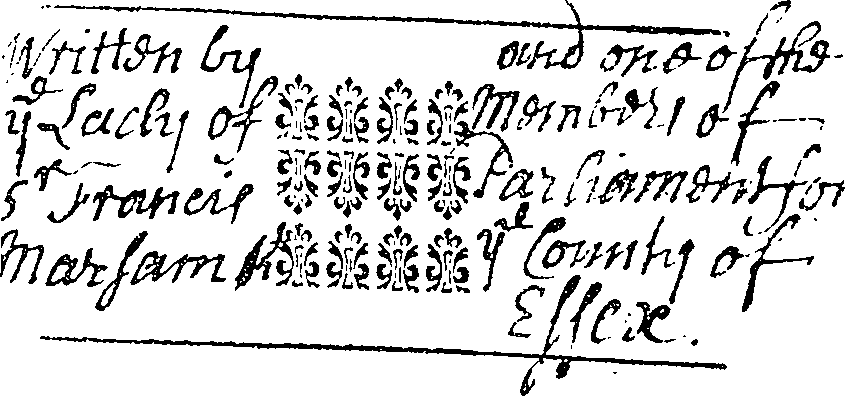 Written by
yͤ Lady of
Sʳ Francis
Marsam Kᵗ
and one of the
Members of
Parliament for
yͤ County of
Essex.